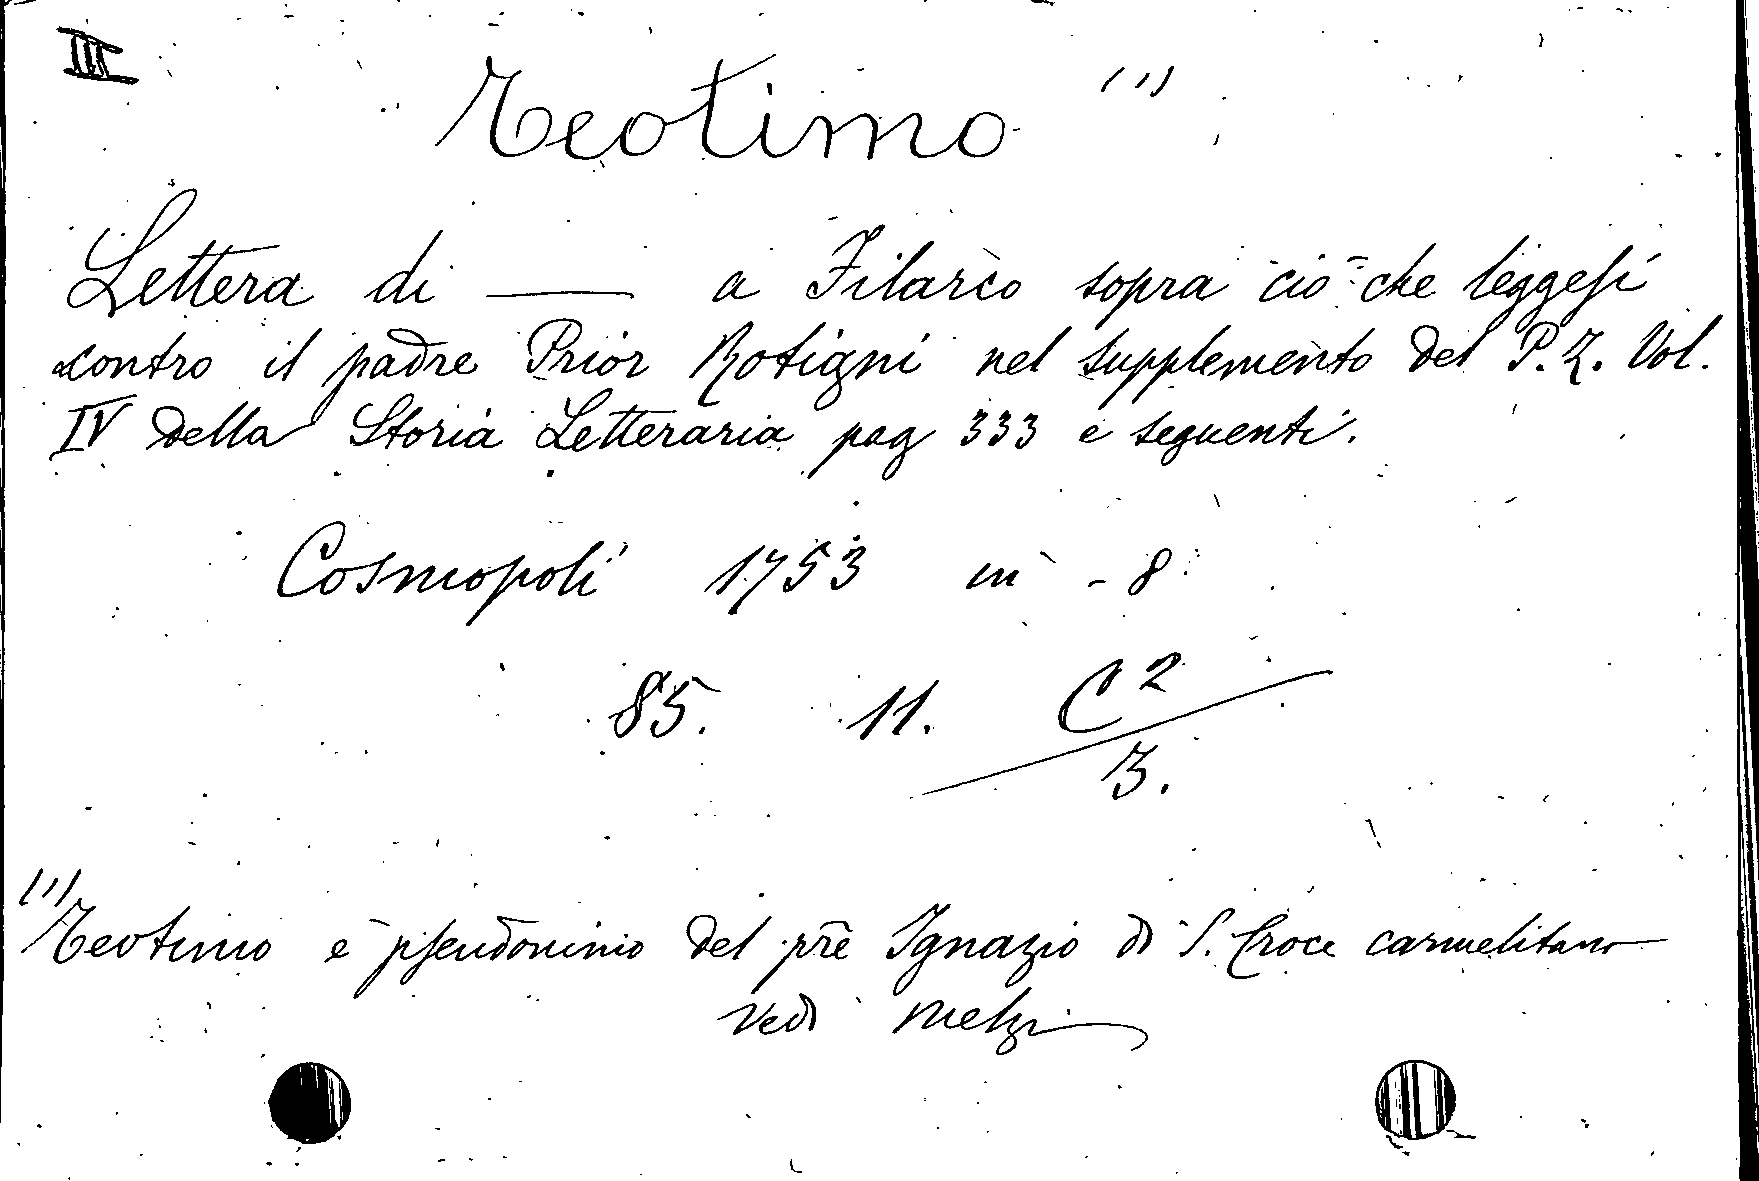 III
Teotimo (1)
Lettera di —— a Filarco sopra ciò che leggesi
contro il padre Prior Rotigni nel supplemento del P. Z. Vol.
IV della Storia Letteraria pag 333 e seguenti.
Cosmopoli 1753 in - 8
85. 11. C2
3.
(1) Teotimo è pseudonimo del pre Ignazio di S. Croce carmelitano
vedi Melzi